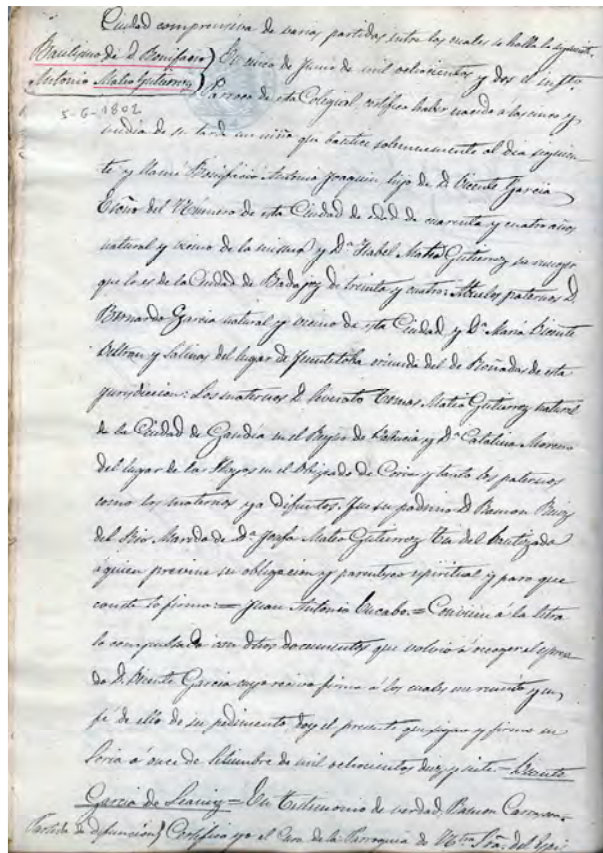 Ciudad comprensiva de varias partidas entre las cuales se halla la siguiente.
Bautismo de D. Bonifacio) En cinco de Junio de mil ochocientos y dos el infto.
Antonio Mateo Gutierrez) Parroco de esta Colegial, certifico haber nacido á las cinco y
5-6-1802
media de la tarde un niño que bautice solemnemente al dia siguien
te y llamé Bonifacio Antonio Joaquin hijo de D. Vicente Garcia
Escno del Número de esta Ciudad de edad de cuarenta y cuatro años
natural y vecino de la misma y Da. Isabel Mateo Gutierrez su muger
que lo es de la Ciudad de Badajoz de treinta y cuatro: Abuelos paternos D.
Bernardo Garcia natural y vecino de esta Ciudad y Da. Maria Vicente
Beltran y Salinas del lugar de Fuentetoba oriunda del de de esta
jurisdiccion: Los maternos D. Tomas Mateo Gutierrez natural
de la Ciudad de Gandia en el Reyno de Valencia y Da. Catalina Moreno
del lugar de las Hoyos en el Obispado de Coria y tanto los paternos
como los maternos ya difuntos. Fue su padrino D. Ramon Ruiz
del Rio Marido de Da. Josefa Mateo Gutierrez tia del bautizado
á quien previne su obligacion y parentesco espiritual y para que
conste lo firmo:= Juan Antonio = Convien á la letra
lo compulsado con dchos documentos que volvió á recoger el espresa
do D. Vicente Garcia cuyo recivo firma á los cuales me remito y en
fé de ello de su pedimento doy el presente que signo y firmo en
Soria á once de Setiembre de mil ochocientos diez y siete = Vicente
Garcia de Leaniz = En testimonio de verdad, Ramon
Partida de defuncion) Certifico yo el Cura de la Parroquia de Ntra. Sra. del Espi